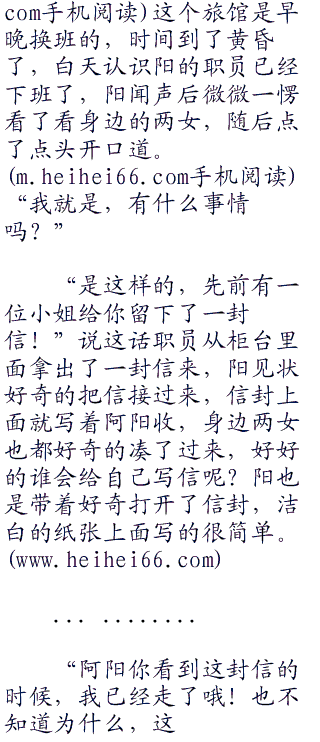 com手机阅读)这个旅馆是早
晚换班的，时间到了黄昏
了，白天认识阳的职员已经
下班了，阳闻声后微微一愣
看了看身边的两女，随后点
了点头开口道。
(m.heihei66.com手机阅读)
“我就是，有什么事情
吗？”
“是这样的，先前有一
位小姐给你留下了一封
信！”说这话职员从柜台里
面拿出了一封信来，阳见状
好奇的把信接过来，信封上
面就写着阿阳收，身边两女
也都好奇的凑了过来，好好
的谁会给自己写信呢？阳也
是带着好奇打开了信封，洁
白的纸张上面写的很简单。
(www.heihei66.com)
... ........
“阿阳你看到这封信的
时候，我已经走了哦！也不
知道为什么，这